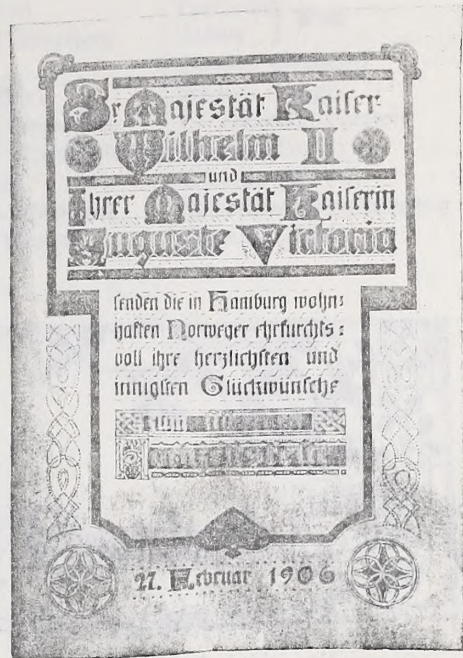 Sr Majestät Kaiser
Wilhelm II
und
Ihrer Majestät Kaiserin
Auguste Victoria
senden die in Hamburg wohn=
haften Norweger ehrfurchts=
voll ihre herzlichsten und
innigsten Glückwünsche
zum
27. Februar 1906